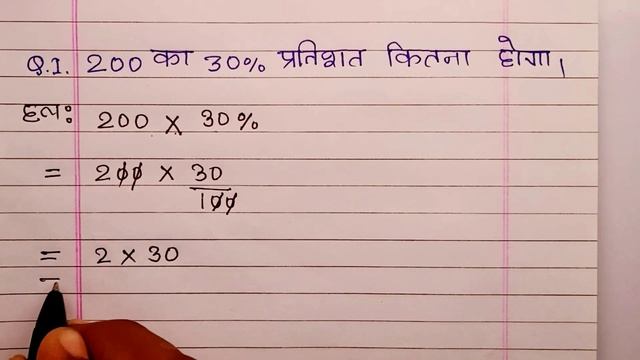 Q.1. 200 का 30% प्रतिशत कितना होगा।
हल: 200 × 30%
= 200 × 30/100
= 2 × 30
=